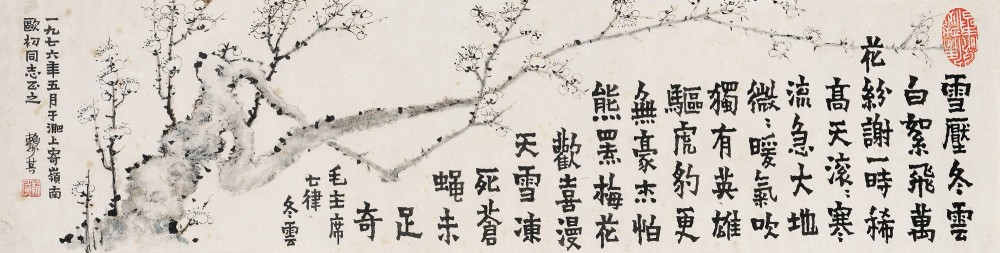 雪壓冬雲
白絮飛萬
花紛謝一時稀
高天滾〻寒
流急大地
微〻暖氣吹
獨有英雄
驅虎豹更
無豪杰怕
熊羆梅花
歡喜漫
天雪凍
死蒼
蠅未
足
奇
毛主席
七律
冬雲
一九七六年五月于淝上寄嶺南
歐初同志正之